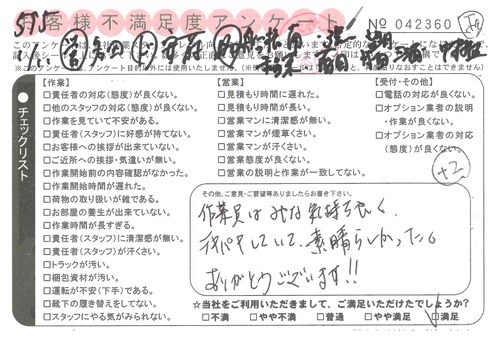 客様不満足度アンケート
No 042360
チェックリスト
【作業】
□責任者の対応(態度)が良くない。
□他のスタッフの対応(態度)が良くない。
□作業を見ていて不安がある。
□責任者(スタッフ)に好感が持てない。
□お客様への挨拶が出来ていない。
□ご近所への挨拶・気遣いが無い。
□作業開始前の内容確認がなかった。
□作業開始時間が遅れた。
□荷物の取り扱いが雑である。
□お部屋の養生が出来ていない。
□作業時間が長すぎる。
□責任者(スタッフ)に清潔感が無い。
□責任者(スタッフ)が汗くさい。
□トラックが汚い。
□梱包資材が汚い。
□運転が不安(下手)である。
□靴下の履き替えをしてない。
□スタッフにやる気がみられない。
【営業】
□見積もり時間に遅れた。
□見積もり時間が長い。
□営業マンに清潔感が無い。
□営業マンが煙草くさい。
□営業マンが汗くさい。
□営業態度が良くない。
□営業の説明と作業が一致してない。
【受付・その他】
□電話の対応が良くない。
□オプション業者の説明
・作業が良くない。
□オプション業者の対応
(態度)が良くない。
+2
その他、ご意見・ご要望等ありましたらお書き下さい。
作業員はみな気持ちよく、
テキパキしていて、素晴らしかった。
ありがとうございます!!
☆当社をご利用いただきまして、ご満足いただけたでしょうか?
□不満 □やや不満 □普通 □やや満足 □満足